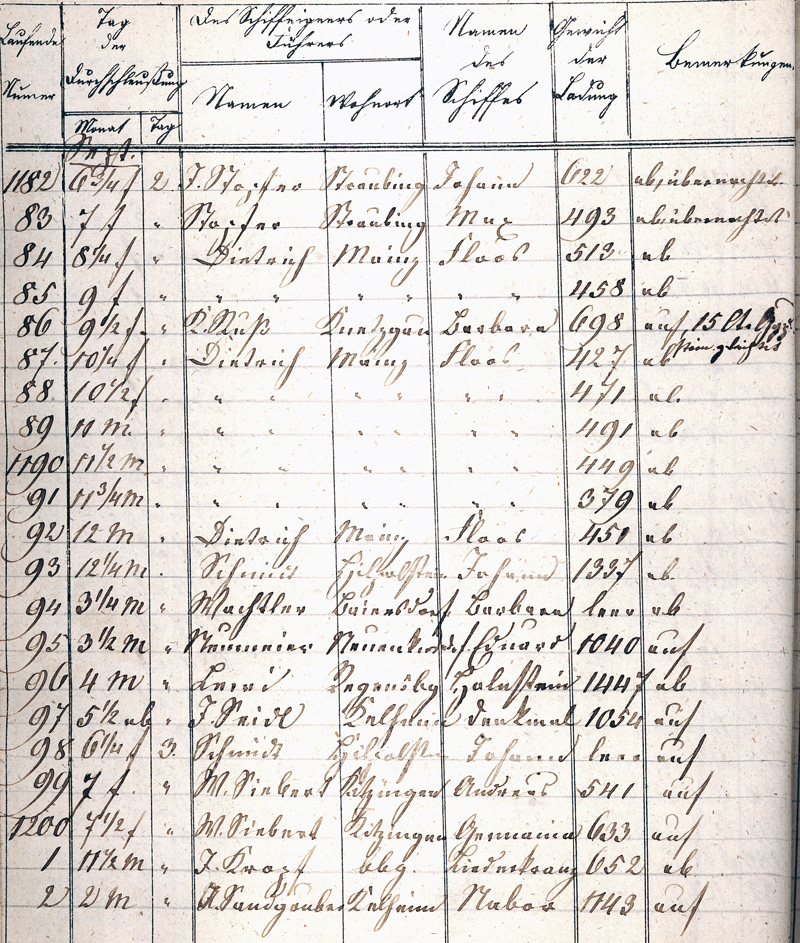 Laufende Numer | Tag der Durchschleußung | Des Schiffeigners oder Führers | Namen des Schiffes | Gewicht der Ladung | Bemerkungen
Monat | Tag | Namen | Wohnort
Sept.
1182 6 3/4 f 2 J. Stapfer Straubing Johann 622 ab, übernachtet
83 7 f " Stapfer Straubing Max 493 ab, übernachtet
84 8 1/4 f " Dietrich Mainz Floos 513 ab
85 9 f " " " " " " " 458 ab
86 9 1/2 f " K. Ruß Knetzgau Barbara 698 auf 15 Ct.
87 10 1/4 f " Dietrich Mainz Floos 427 ab
88 10 1/2 f " " " " " " " 471 ab
89 11 m " " " " " " " 491 ab
1190 11 1/2 m " " " " " " " 449 ab
91 11 3/4 m " " " " " " " 379 ab
92 12 m " Dietrich Mainz Floos 451 ab
93 12 1/4 m " Schmidt Hilpoltstein Johann 1337 ab
94 3 1/4 m " Wachtler Baiersdorf Barbara leer ab
95 3 1/2 m " Neumeier Eduard 1040 auf
96 4 m " Regensbg 1447 ab
97 5 1/2 ab " J. Seidl Kelheim Denkmal 1054 auf
98 6 1/4 f 3 Schmidt Hilpoltstein Johann leer auf
99 7 f " W. Siebert Kitzingen Andreas 541 auf
1200 7 1/2 f " W. Siebert Kitzingen Germania 633 auf
1 11 1/2 m " J. Kropf bbg. Liederkranz 652 ab
2 2 m " Kelheim Nabor 1143 auf